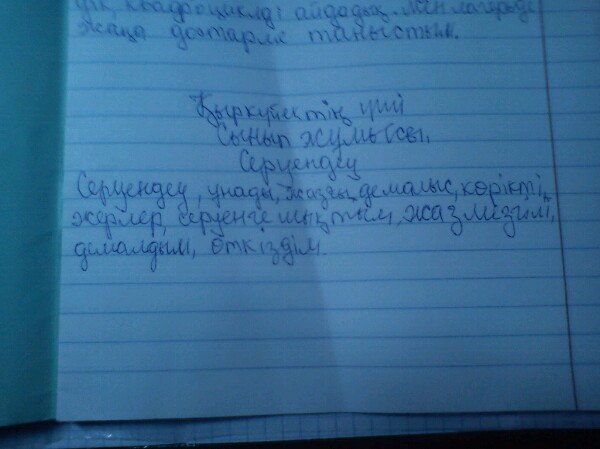 дік, квадроциклді айдадық. Мен лагерьде
жаңа достарма таныстым.
Қыркүйектің үші
Сынып жұмысы.
Серуендеу
Серуендеу, ұнады, жазғы демалыс, көрікті
жерлер, серуенге шықтым, жаз мезгілі,
демалдым, өткіздім.